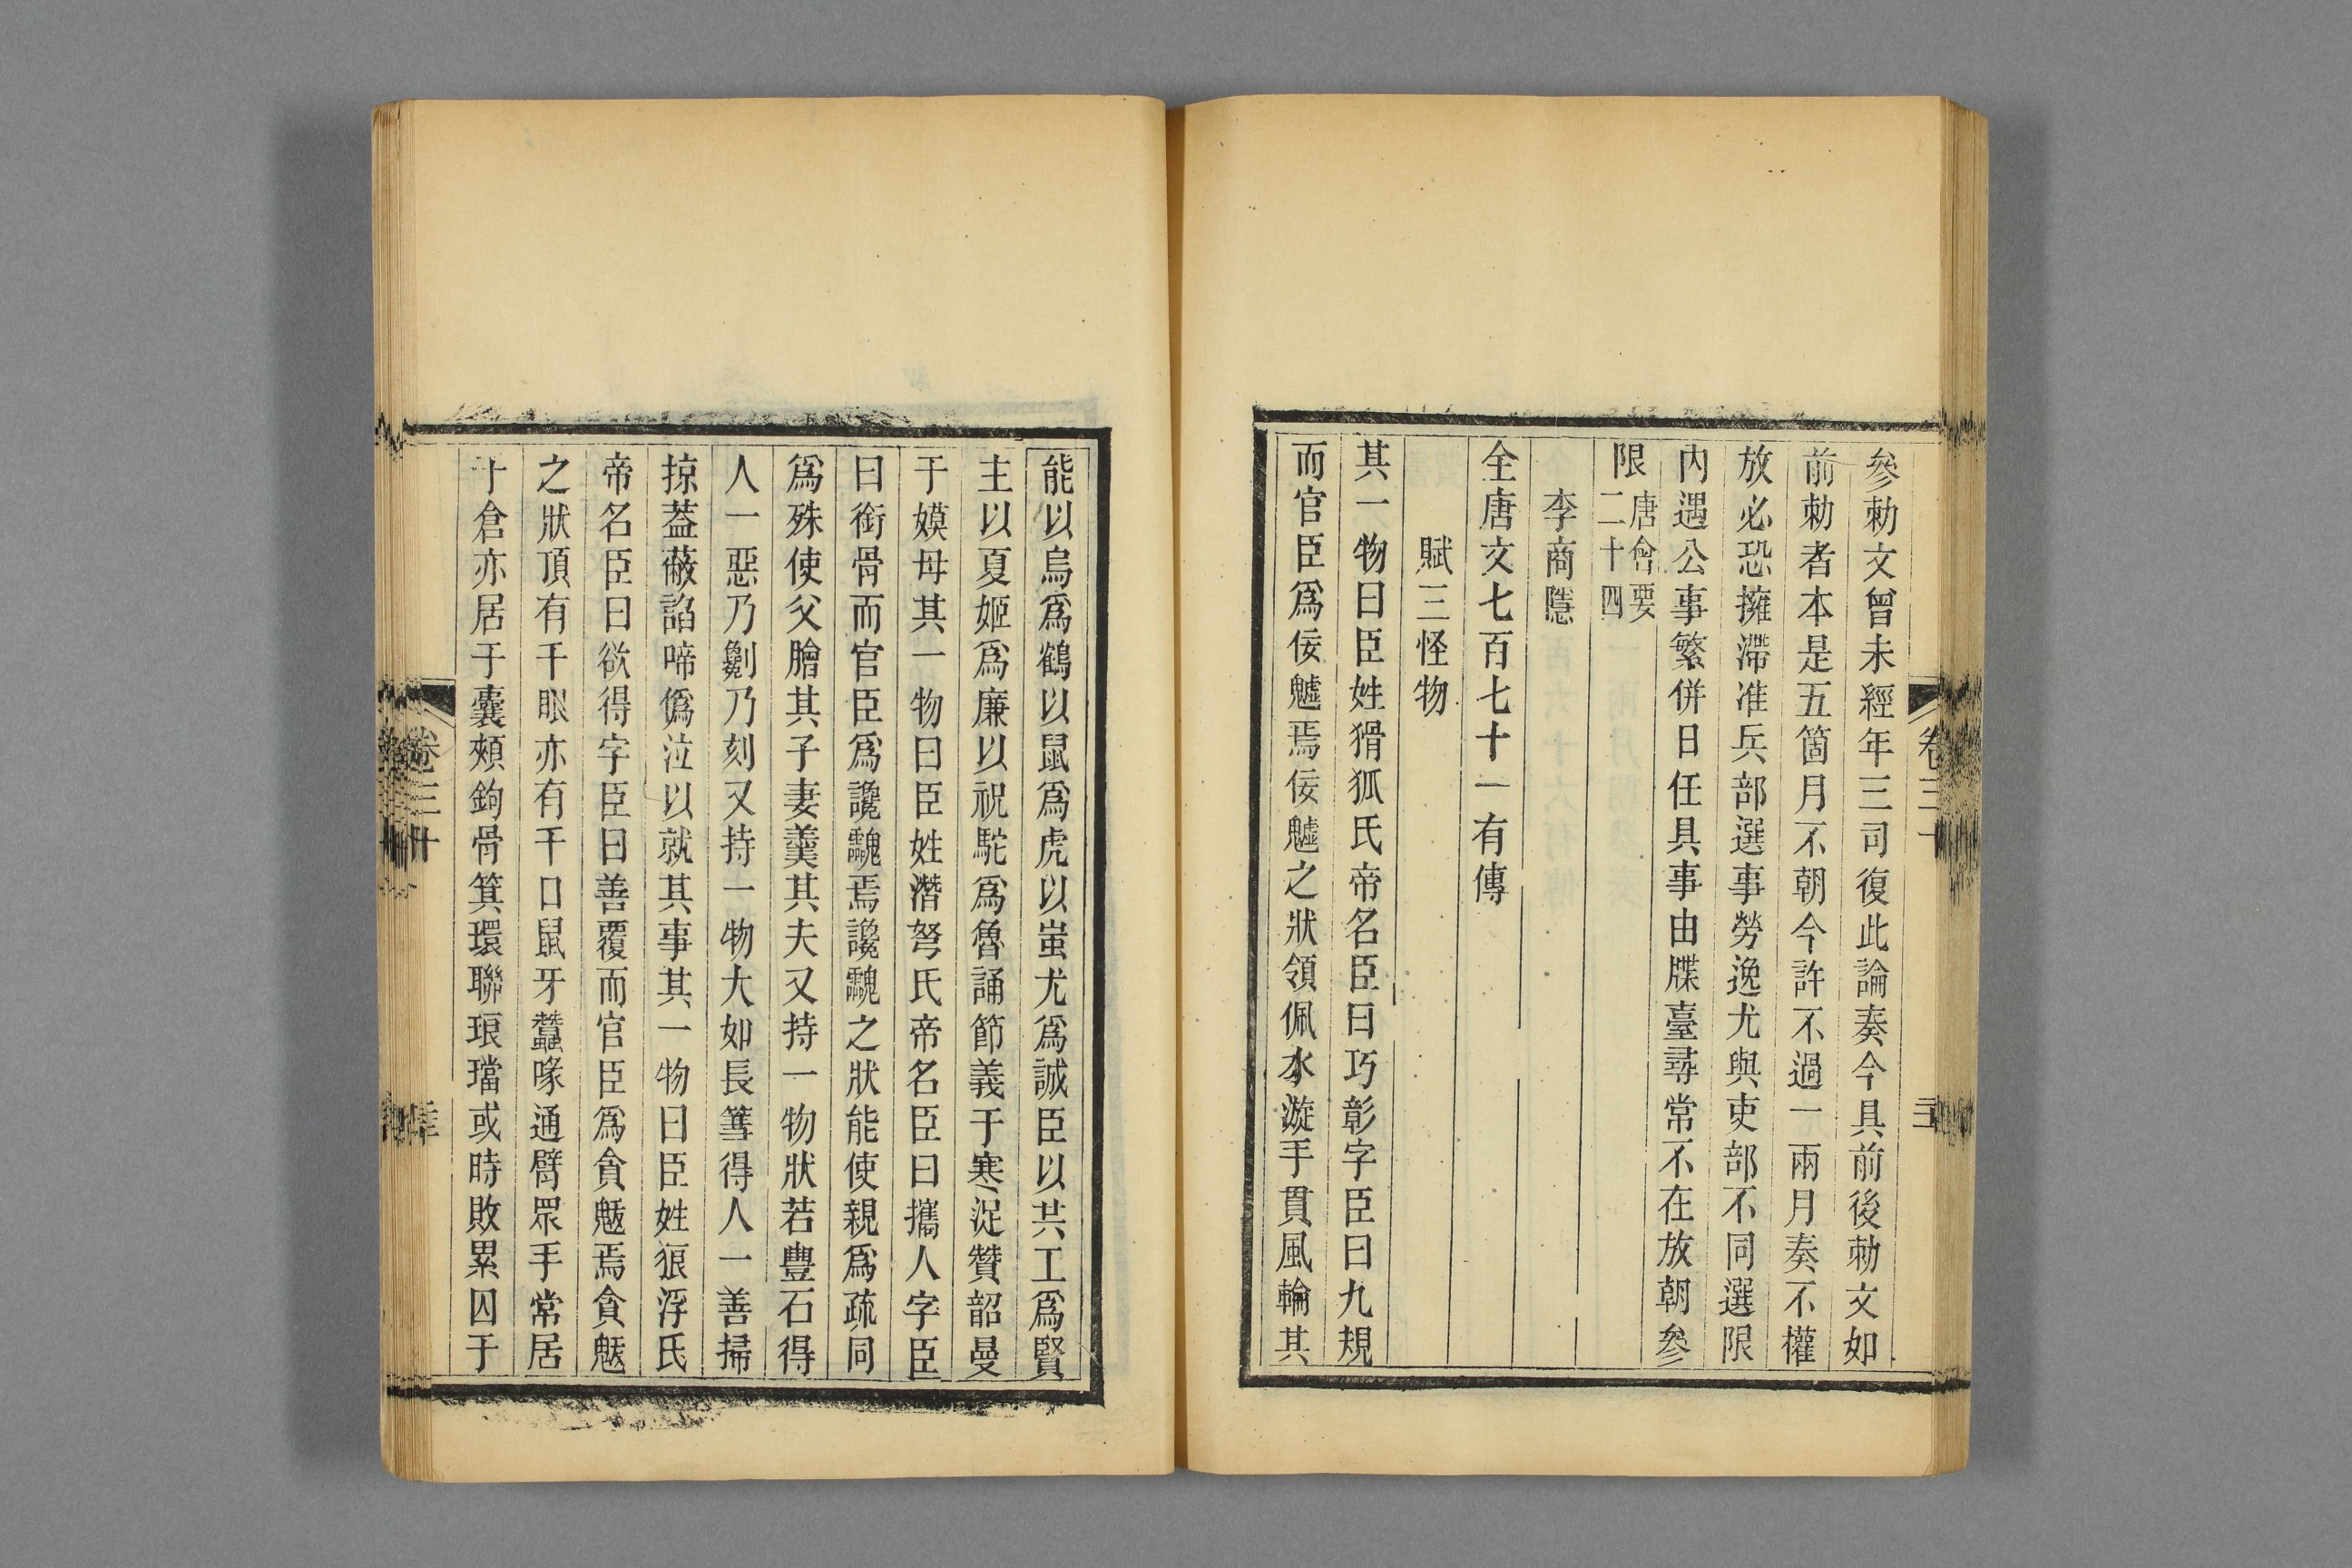 參勅文曾未經年三司復此論奏今具前後勅文如
前勅者本是五箇月不朝今許不過一兩月奏不權
放必恐擁滯准兵部選事勞逸尤與吏部不同選限
內遇公事繁併日任具事由牒臺尋常不在放朝參
限唐會要二十四
李商隱
全唐文七百七十一有傳
賦三怪物
其一物曰臣姓猾狐氏帝名臣曰巧彰字臣曰九規
而官臣爲佞魖焉佞魖之狀領佩水漩手貫風輪其
能以烏爲鶴以鼠爲虎以蚩尤爲誠臣以共工爲賢
主以夏姬爲廉以祝鮀爲魯誦節義于寒浞贊韶曼
于嫫母其一物曰臣姓潛弩氏帝名臣曰攜人字臣
曰銜骨而官臣爲讒䰰焉讒䰰之狀能使親爲疏同
爲殊使父膾其子妻羹其夫又持一物狀若豐石得
人一惡乃劖乃刻又持一物大如長篲得人一善掃
掠蓋蔽諂啼僞泣以就其事其一物曰臣姓狼浮氏
帝名臣曰欲得字臣曰善覆而官臣爲貪魃焉貪魃
之狀頂有千眼亦有千口鼠牙蠶喙通臂眾手常居
于倉亦居于囊頰鉤骨箕環聯琅璫或時敗累囚于
卷三十
卷三十